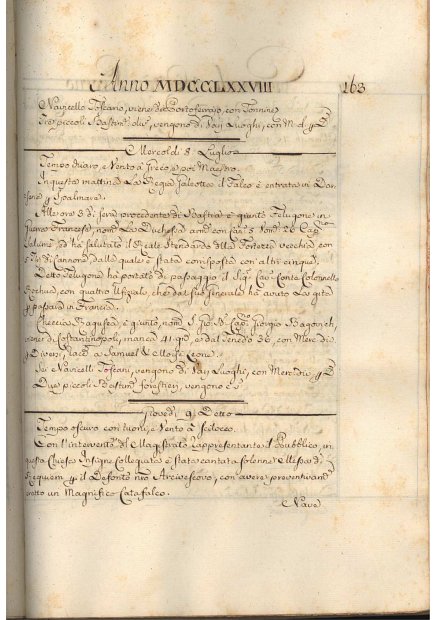 Anno MDCCLXXVIII 163
Navicello Toscano, viene da Portoferraio, con Tonnina
Tre piccoli Bastim.ti div.si, vengono di Varj Luoghi, con M. d. p D.
Mercoldì 8. Luglio
Tempo chiaro, e Vento a Greco, e poi Maestro.
In questa mattina La Regia Galeotta il Falco è entrata in Dar-
sena p Spalmare.
Alle ore 3 di sera procedente di Bastia è giunto Felugone in
Guerra Francese, nom. La Duchessa
salume, ed ha salutato il Reale Stendardo della Fortezza vecchia con
5. Tiri di Cannone, dalla quale è stata corrisposta con altri cinque.
Detto Felugone ha portato di passaggio il Sig. Cav. Conte Colonnello
Rochua, con quattro Ufizuali, che dal suo Generale ha avuto La gita
p passare in Francia.
Checcia Ragusea è giunto, nom. S. Gio. B. Cap. Giorgio Bagovich,
viene di Costantinopoli, manca 41 gni, e dal Tenedo 36, con Merc. div.
p Diversi, racc. a Samuel e Moise Leone.
Sei Navicelli Toscani, vengono di Varj Luoghi, con Merc. div. p D.
Due piccoli Bastim. forestieri, vengono e s.
Giovedì 9. Detto
Tempo oscuro con tuoni, e Vento a Scilocco.
Con l'intervento del Magistrato rappresentante il Pubblico, in
questa Chiesa Insigne Collegiata è stata cantata solenne Messa di
Requiem p il Defonto nro Arcivescovo, con avere preventivam.
eretto un Magnifico Catafalco.
Nave